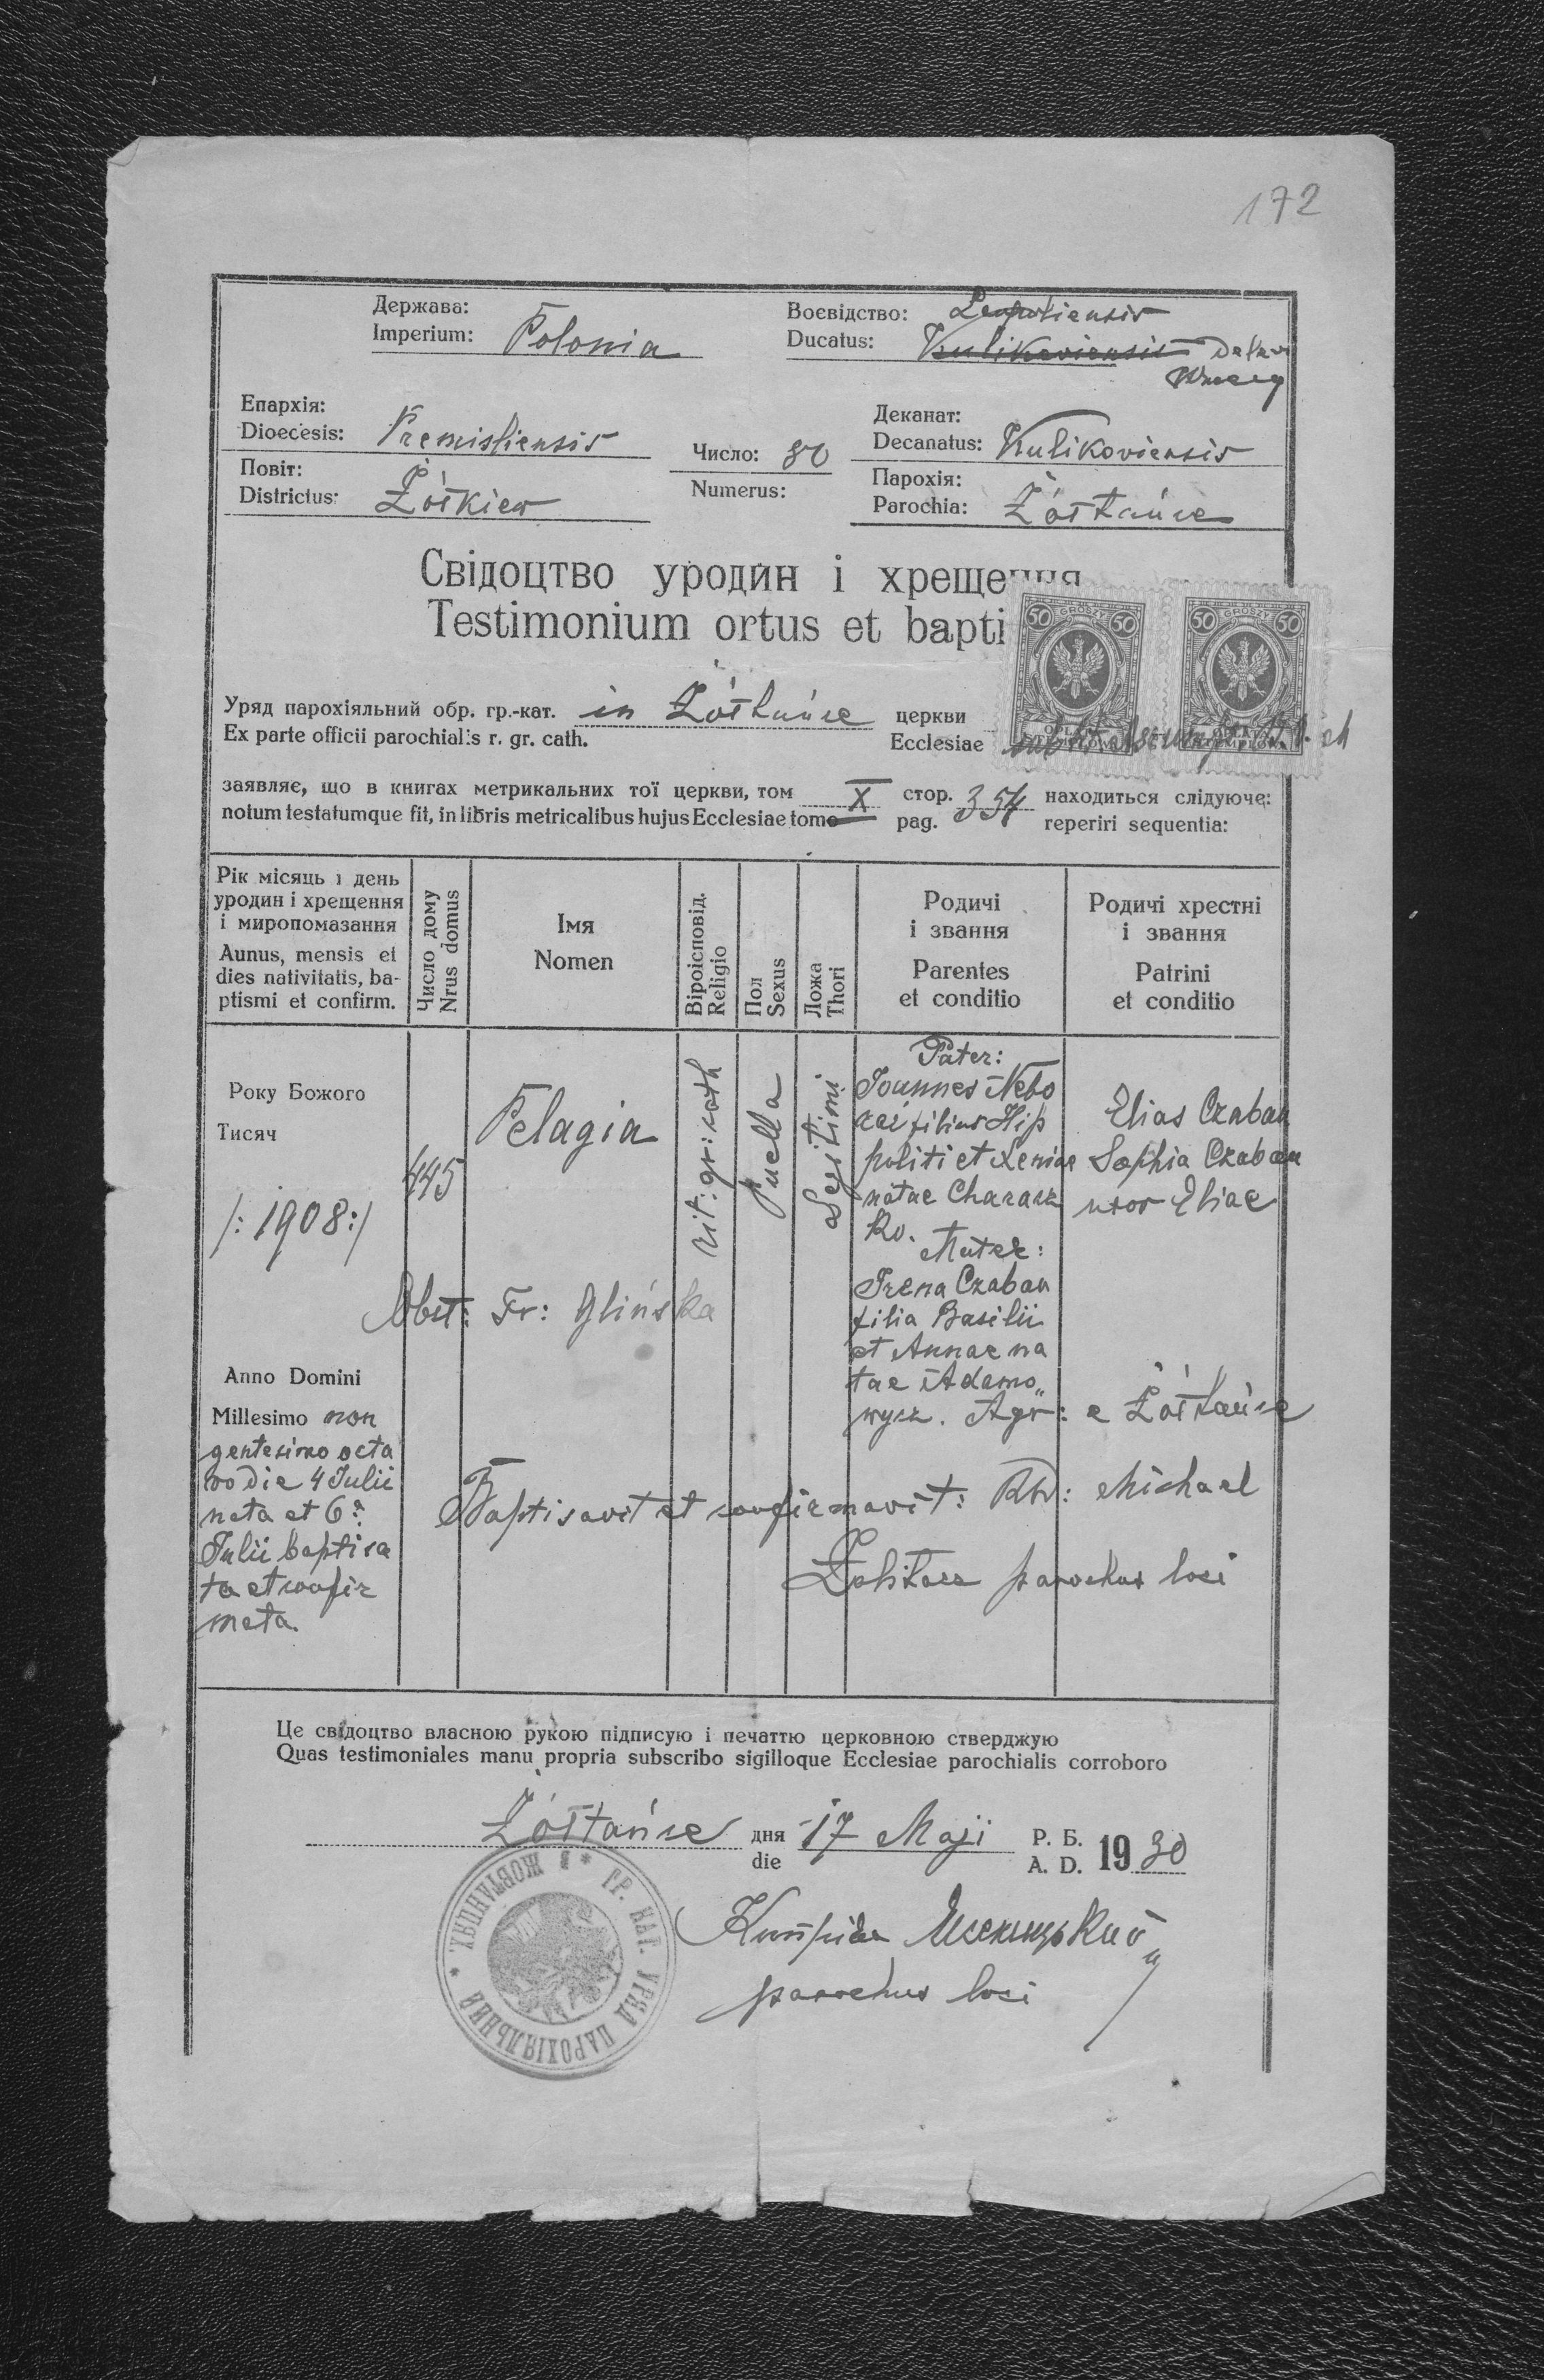 172
Держава:
Imperium: Polonia
Воєвідство: Leopoliensis
Ducatus: Kulikoviensis
Епархія:
Dioecesis: Premisliensis
Число: 80
Numerus:
Деканат:
Decanatus: Kulikoviensis
Повіт:
Districtus: Żółkiew
Парохія:
Parochia: Żółtańce
Свідоцтво уродин і хрещення
Testimonium ortus et bapti
50 GROSZY 50
50 GROSZY 50
Уряд парохіяльний обр. гр.-кат. in Żółtańce церкви
Ex parte officii parochialis r. gr. cath. Ecclesiae sub tit. Assumpt.
заявляє, що в книгах метрикальних тої церкви, том X стор. 354 находиться слідуюче:
notum testatumque fit, in libris metricalibus hujus Ecclesiae tomo pag. reperiri sequentia:
Рік місяць і день
уродин і хрещення
і миропомазання
Aunus, mensis et
dies nativitatis, ba-
ptismi et confirm.
Число дому
Nrus domus
Імя
Nomen
Віроісповід.
Religio
Пол
Sexus
Ложа
Thori
Родичі
і звання
Parentes
et conditio
Родичі хрестні
і звання
Patrini
et conditio
Року Божого
Тисяч
/: 1908:/
Anno Domini
Millesimo non
gentesimo octa
vo die 4 Julii
nata et 6?
Julii baptisa
ta et confir
mata.
445
Pelagia
rit: gr: cath
Puella
Legitimi
Pater:
Joannes Nebo
rai filius Hip
politi et Xeniae
natae Charasz
ko.
Mater:
Irena Czaban
filia Basilii
et Annae na
tae Adamo„
wycz. Agr: e Żółtańce
Elias Czaban
Sophia Czaban
uxor Eliae
Obst: Fr: Glińska
Baptisavit et confirmavit: Michael
parochus loci
Це свідоцтво власною рукою підписую і печаттю церковною стверджую
Quas testimoniales manu propria subscribo sigilloque Ecclesiae parochialis corroboro
Żółtańce дня 17 Maji Р. Б. 1930
die A. D.
ГР. КАТ. УРЯД ПАРОХІЯЛЬНИЙ * В ЖОВТАНЦЯХ *
parochus loci